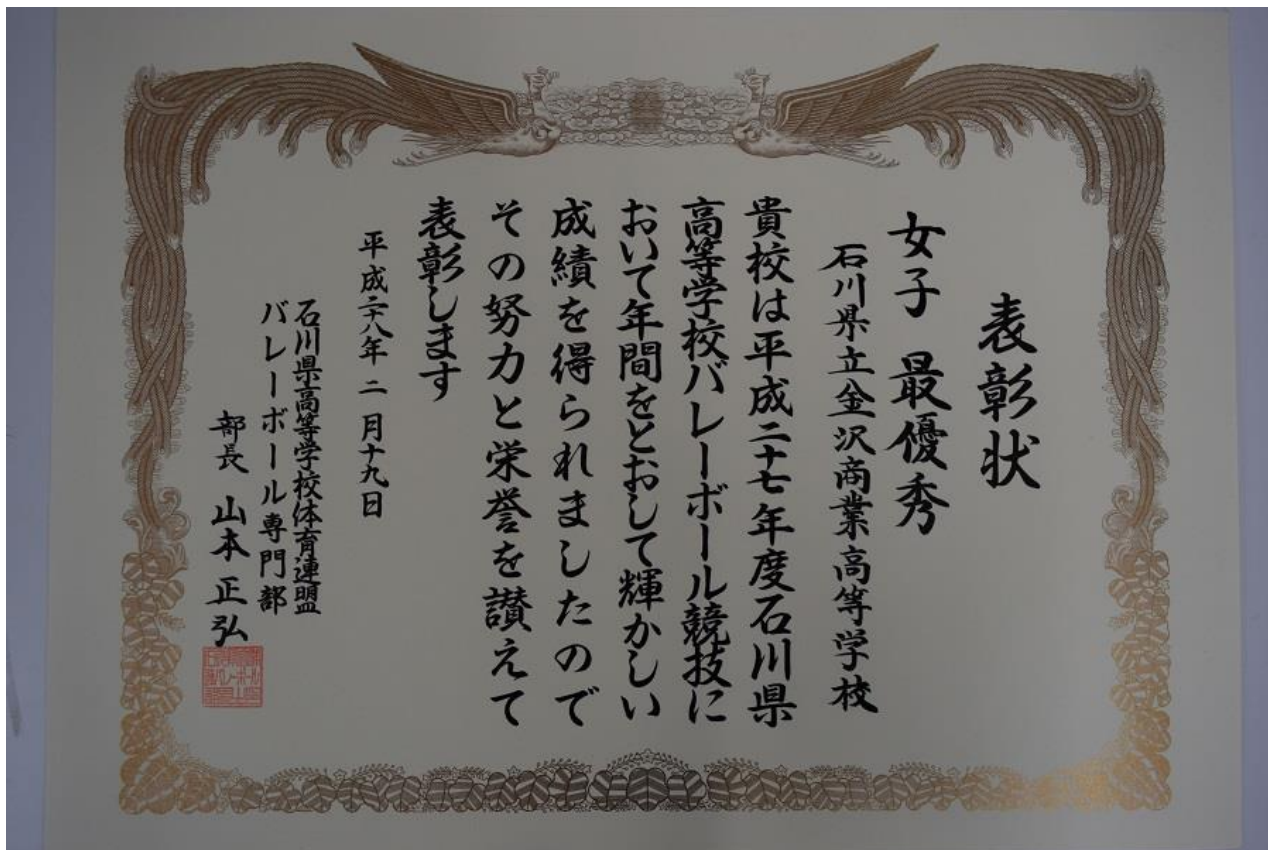 表彰状
女子 最優秀
石川県立金沢商業高等学校
貴校は平成二十七年度石川県
高等学校バレーボール競技に
おいて年間をとおして輝かしい
成績を得られましたので
その努力と栄誉を讃えて
表彰します
平成二十八年 二 月十九日
石川県高等学校体育連盟
バレーボール専門部
部長 山本正弘